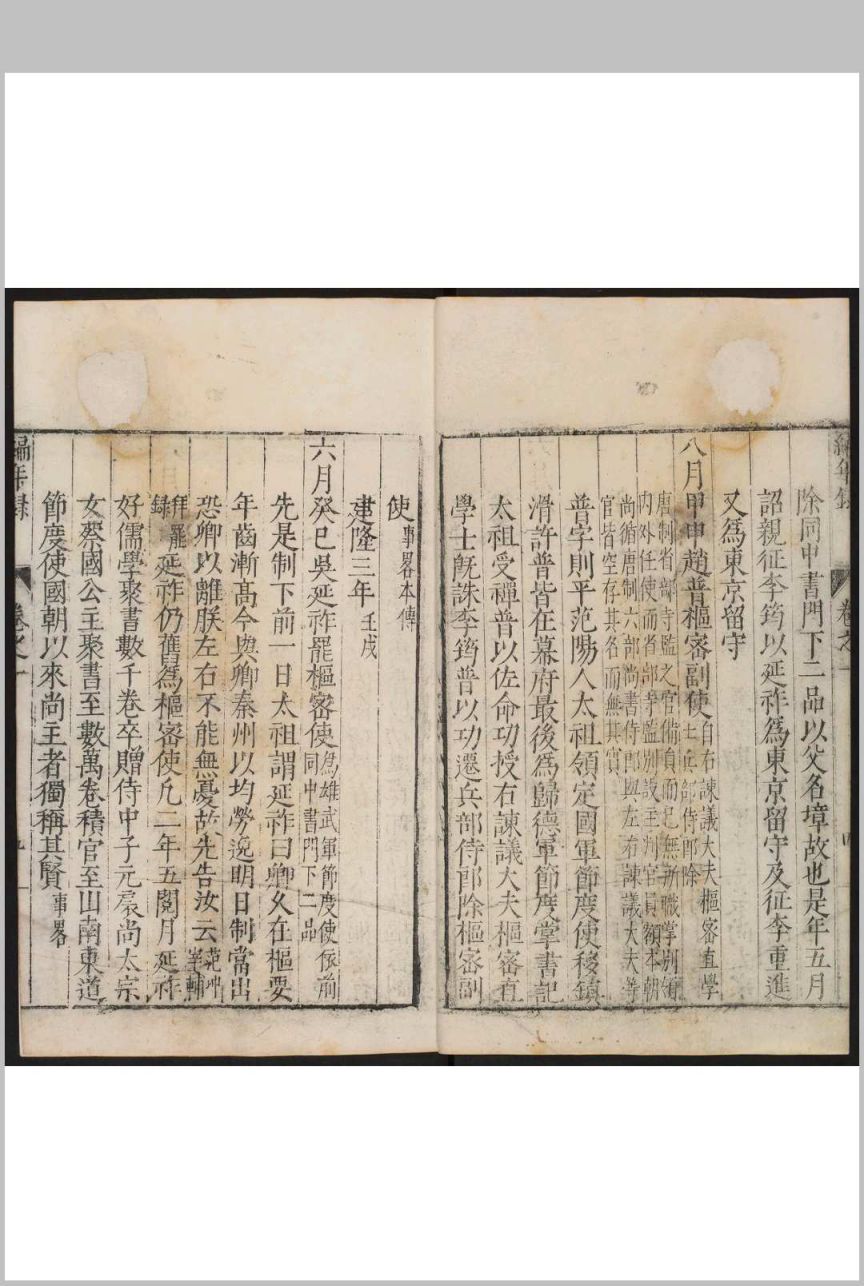 除同中書門下二品以父名璋故也是年五月
詔親征李筠以延祚爲東京留守及征李重進
又爲東京留守
八月甲申趙普樞密副使自右諫議大夫樞密直學
士兵部侍郎除
唐制省部寺監之官備員而已無所職掌別領
内外任使而省部寺監別設主判官員額本朝
尚循唐制六部尚書侍郎與左右諫議大夫等
官皆空存其名而無其實
普字則平范陽人太祖領定國軍節度使移鎮
滑許普皆在幕府最後爲歸德軍節度掌書記
太祖受禪普以佐命功授右諫議大夫樞密直
學士旣誅李筠普以功遷兵部侍郎除樞密副
編年錄
卷之一
四
使事畧本傳
建隆三年壬戌
六月癸巳吳延祚罷樞密使爲雄武軍節度使依前
同中書門下二品
先是制下前一日太祖謂延祚曰卿久在樞要
年齒漸高今與卿秦州以均勞逸明日制當出
恐卿以離朕左右不能無憂故先告汝云范冲
羊輔
拜罷
錄延祚仍舊爲樞密使凡二年五閱月延祚
好儒學聚書數千卷卒贈侍中子元扆尚太宗
女蔡國公主聚書至數萬卷積官至山南東道
節度使國朝以來尚主者獨稱其賢事畧
編年錄
卷之一